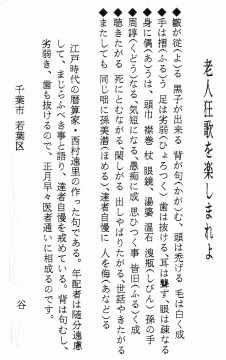 老人狂歌を楽しまれよ
◆皺が従(よ)る 黒子が出来る 背が句(かが)む、頭は禿げる 毛は白く成
◆手は摺(ふる)う 足は劣弱(ひょろつく) 歯は抜ける、耳は聾ず、眼は疎なる
◆身に偶(あ)うは、頭巾 襟巻 杖 眼鏡、湯婆 温石 溲瓶(しびん) 孫の手
◆周諄(くどう)なる、気短になる、愚痴に成 思ひつく事 皆旧(ふる)く成
◆聴きたがる 死にとむながる、鬧しがる 出しやばりたがる、世話やきたがる
◆またしても 同じ咄に孫美潜(ほめる)、達者自慢に 人を侮(あなど)る
江戸時代の暦算家・西村遠里の作った句である。年配者は随分遠慮
して、まじらふべき事と語り、達者自慢を戒めている。背は句むし、
劣弱き、歯も抜けるので、正月早々医者通いに相成るのです。
千葉市 若葉区 谷